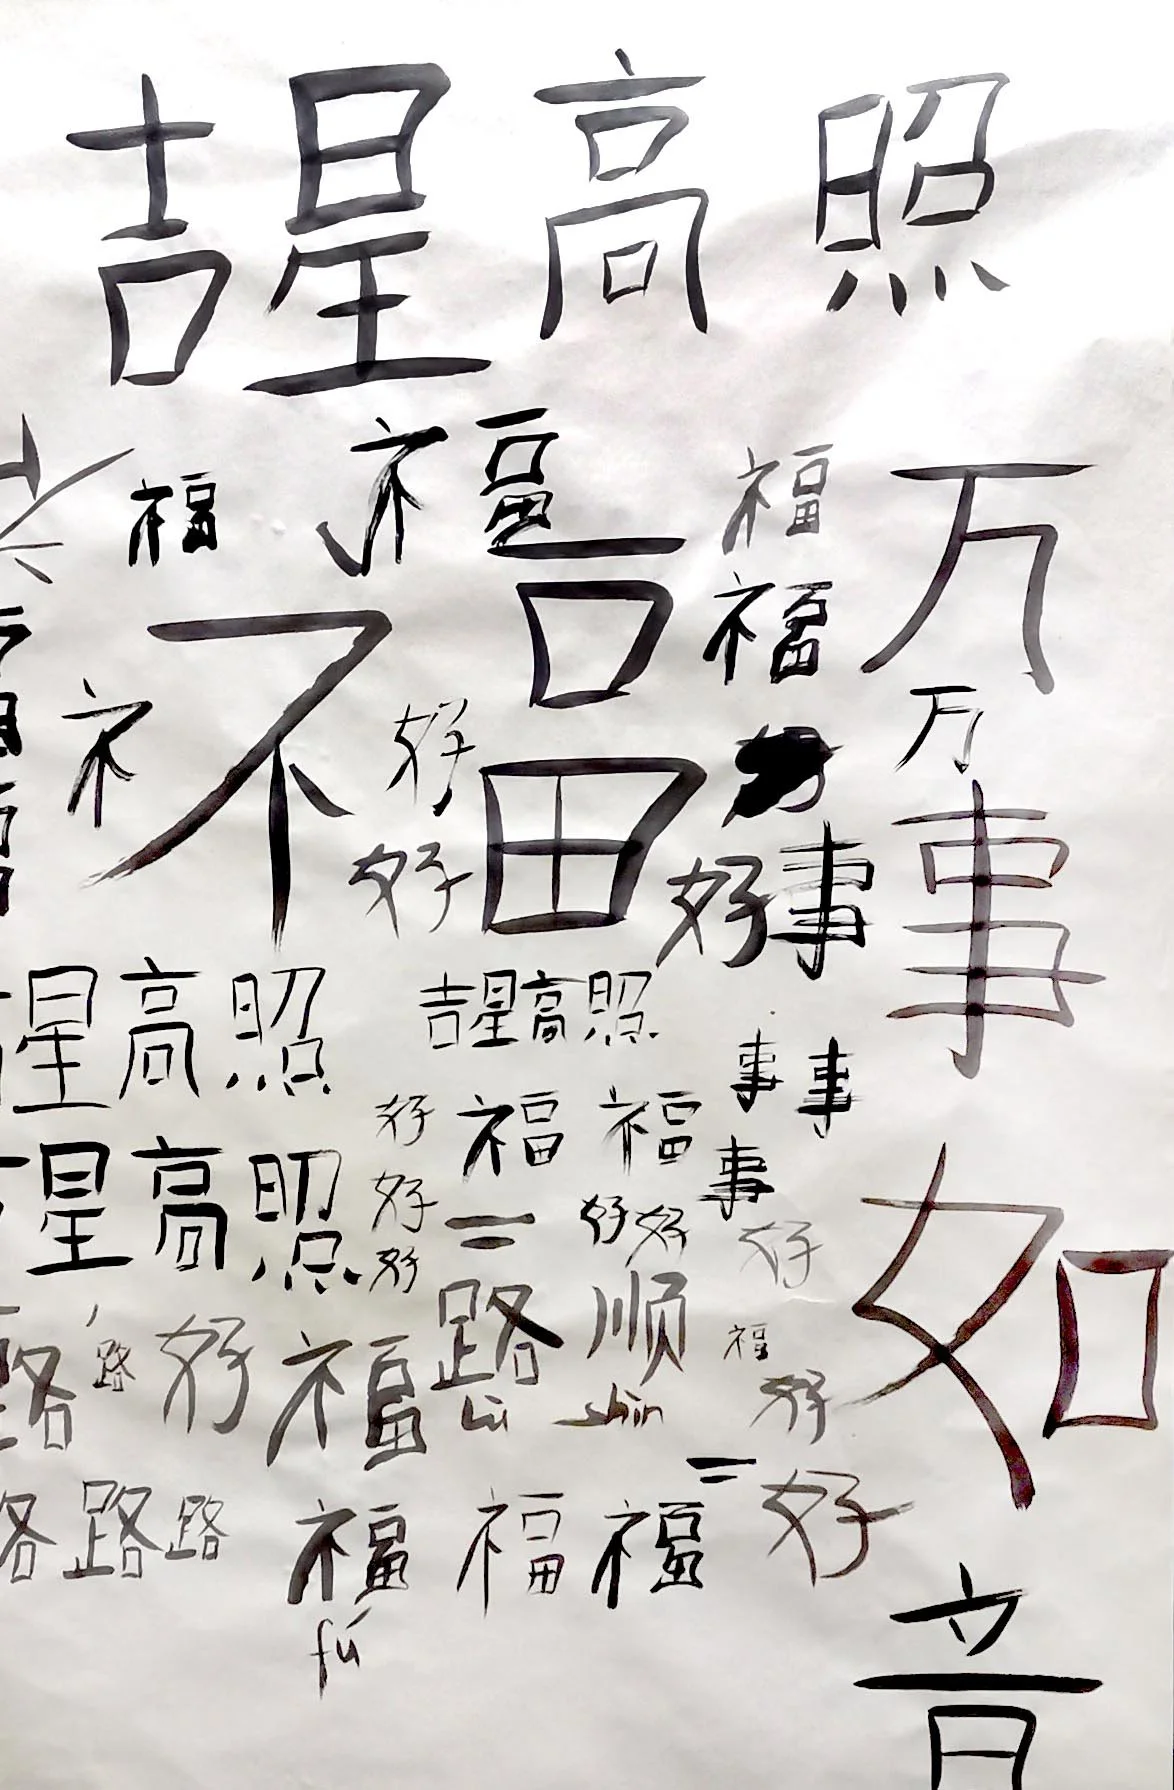 吉星高照
福 福 福
万
福
福
万
好
好
好 事
事
星高照
吉星高照
事 事
好 福 福
事
星高照
好
好
好 好 好
二
路 顺
lù shùn
如
路 路 好 福
福
好
二
路 路 路
福 福 福 好
fú
音